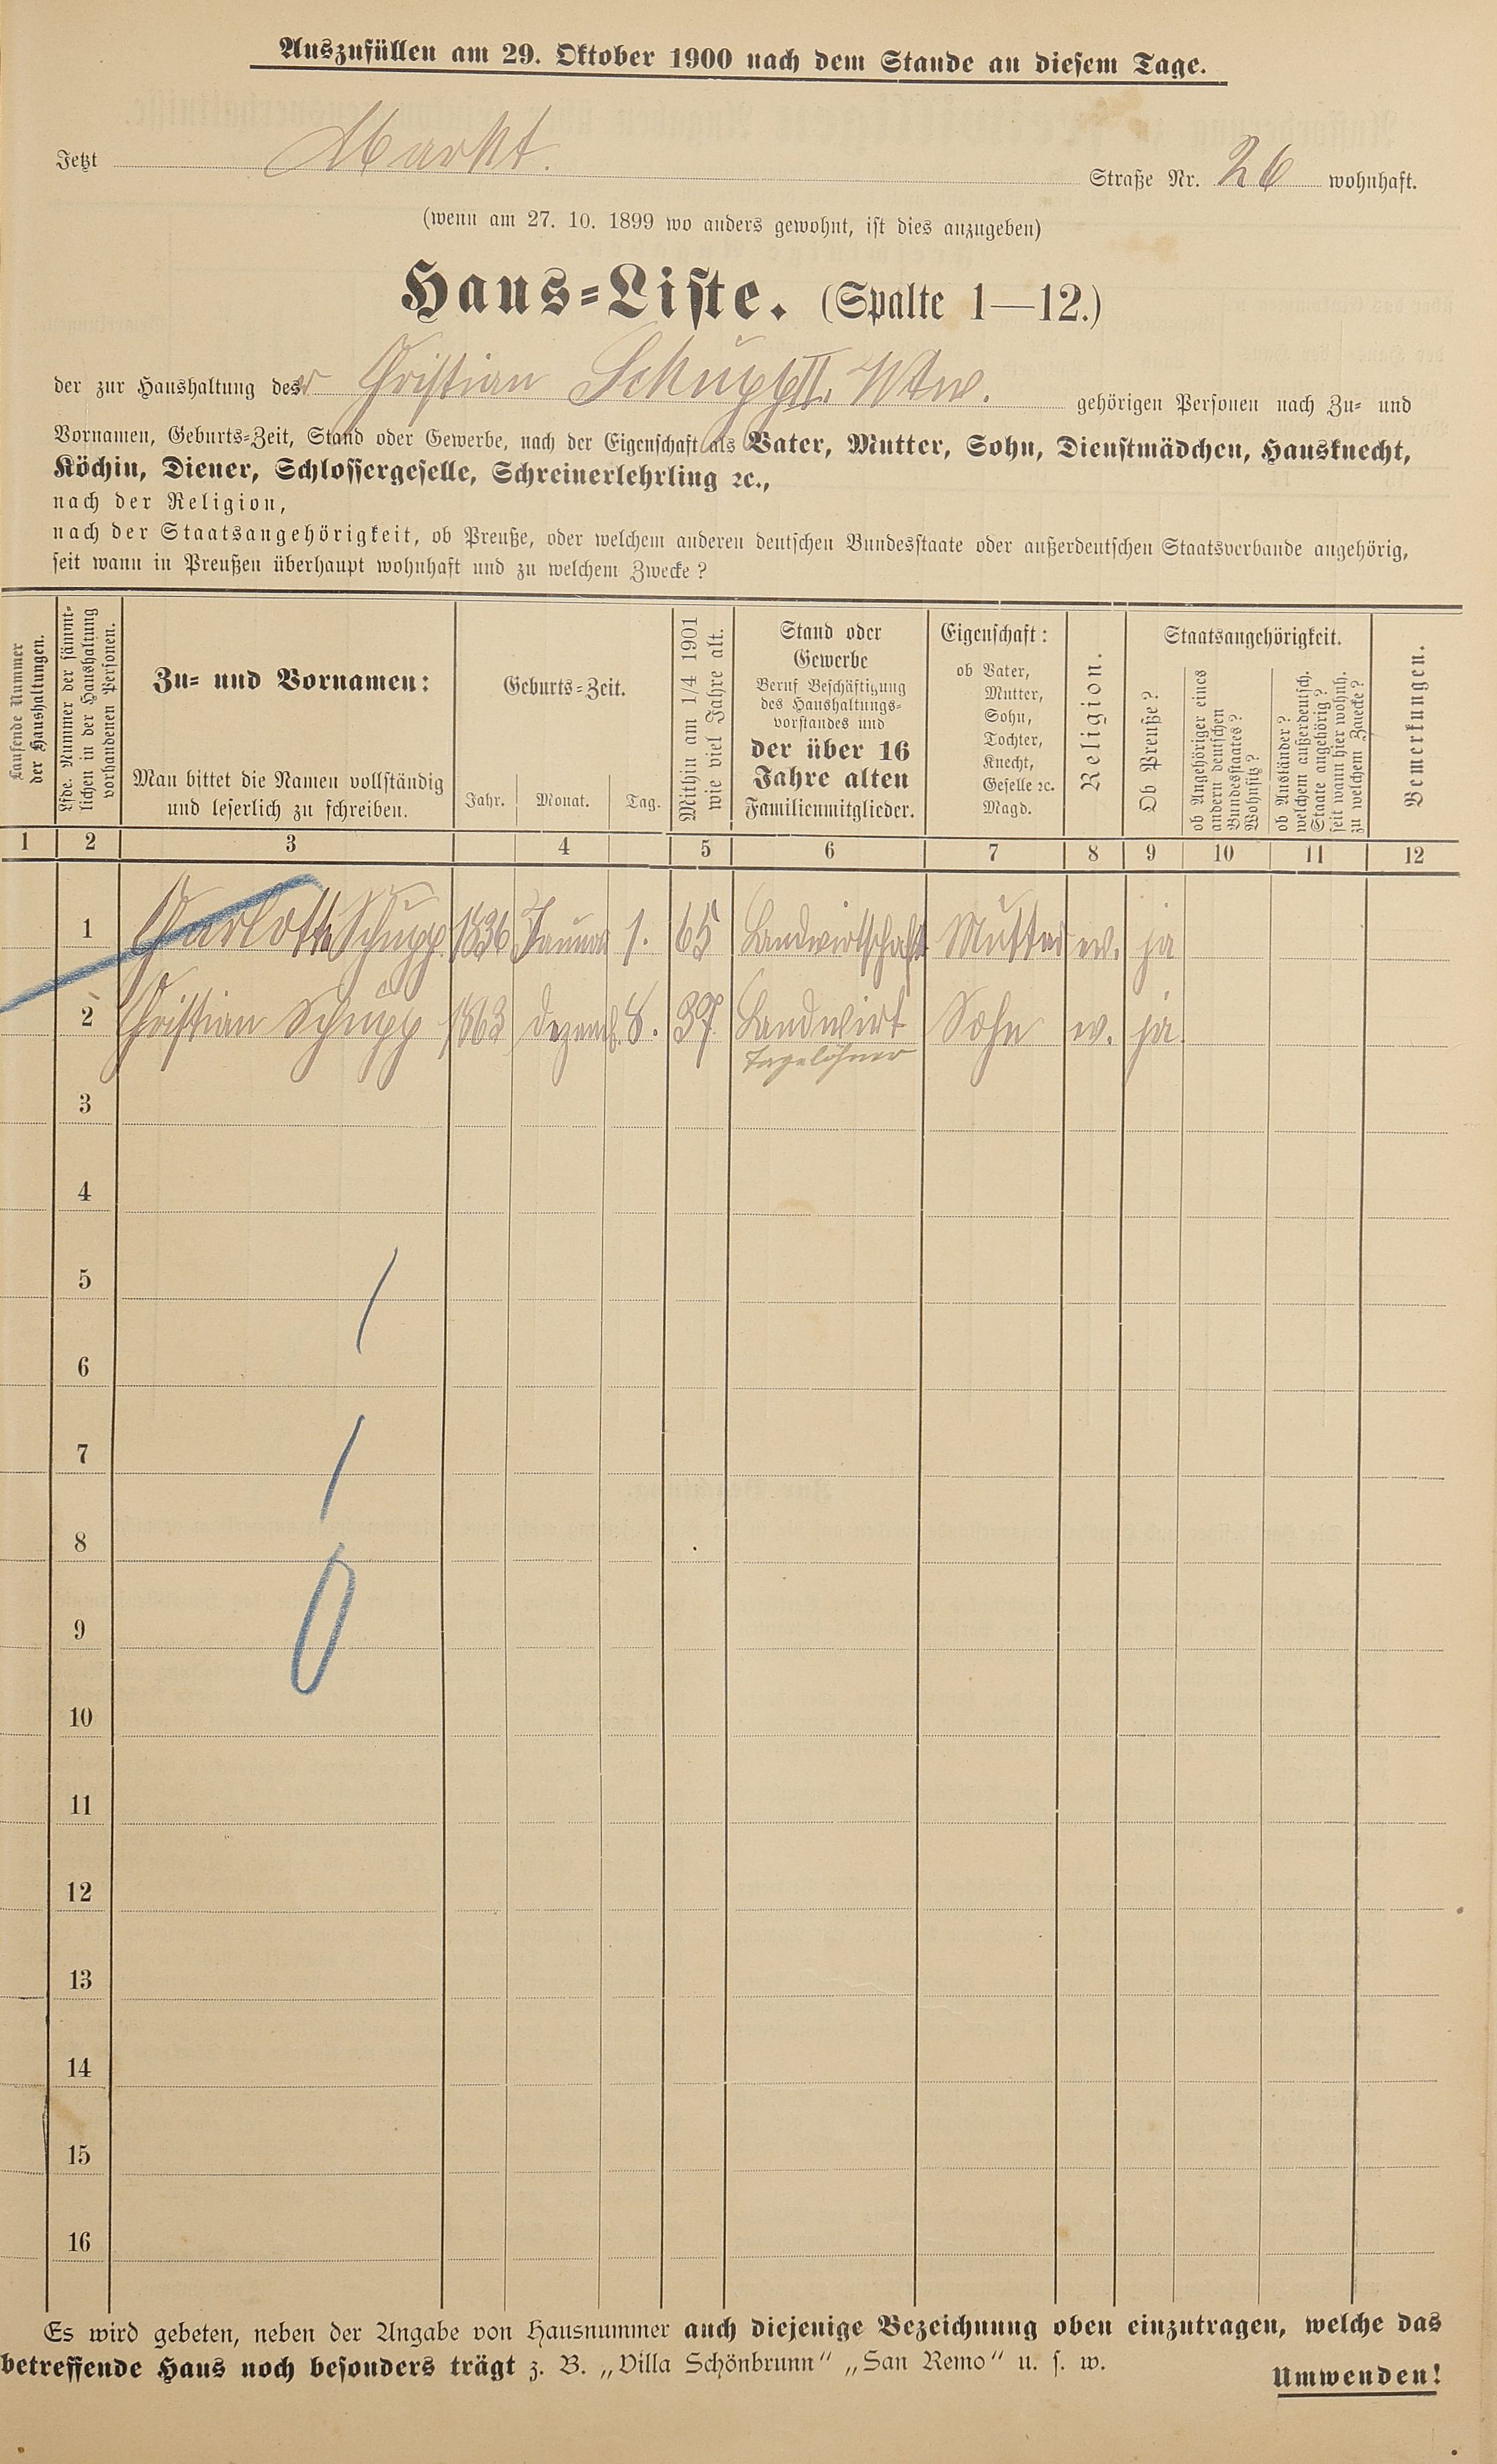 Auszufüllen am 29. Oktober 1900 nach dem Stande an diesem Tage.
Jetzt Markt. Straße Nr. 26 wohnhaft.
(wenn am 27. 10. 1899 wo anders gewohnt, ist dies anzugeben)
Haus=Liste. (Spalte 1—12.)
der zur Haushaltung der Christian Schupp II. Wtw. gehörigen Personen nach Zu= und
Vornamen, Geburts=Zeit, Stand oder Gewerbe, nach der Eigenschaft als Vater, Mutter, Sohn, Dienstmädchen, Hausknecht,
Köchin, Diener, Schlossergeselle, Schreinerlehrling ꝛc.,
nach der Religion,
nach der Staatsangehörigkeit, ob Preuße, oder welchem anderen deutschen Bundesstaate oder außerdeutschen Staatsverbande angehörig,
seit wann in Preußen überhaupt wohnhaft und zu welchem Zwecke?
Laufende Nummer
der Haushaltungen.
Lfde. Nummer der sämmt=
lichen in der Haushaltung
vorhandenen Personen.
Zu= und Vornamen:
Man bittet die Namen vollständig
und leserlich zu schreiben.
Geburts=Zeit.
Jahr. Monat. Tag.
Mithin am 1/4 1901
wie viel Jahre alt.
Stand oder
Gewerbe
Beruf Beschäftigung
des Haushaltungs=
vorstandes und
der über 16
Jahre alten
Familienmitglieder.
Eigenschaft:
ob Vater,
Mutter,
Sohn,
Tochter,
Knecht,
Geselle ꝛc.
Magd.
Religion.
Staatsangehörigkeit.
Ob Preuße?
ob Angehöriger eines
andern deutschen
Bundesstaates?
Wohnsitz?
ob Ausländer?
welchem außerdeutsch.
Staate angehörig?
seit wann hier wohnh.
zu welchem Zwecke?
Bemerkungen.
1 2 3 4 5 6 7 8 9 10 11 12
1 Carlotte Schupp 1836 Januar 1. 65 Landwirtschaft Mutter ev. ja
2 Christian Schupp 1863 Dezemb. 8. 37 Landwirt Sohn ev. ja
Tagelöhner
3
4
5
6
7
8
9
10
11
12
13
14
15
16
Es wird gebeten, neben der Angabe von Hausnummer auch diejenige Bezeichnung oben einzutragen, welche das
betreffende Haus noch besonders trägt z. B. „Villa Schönbrunn“ „San Remo“ u. s. w.
Umwenden!